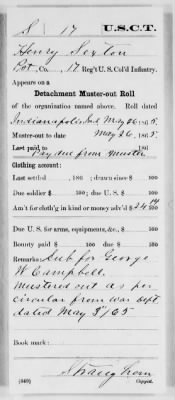 S 17 U.S.C.T.
Henry Sexton
Pvt, Co. , 17 Reg't U. S. Col'd Infantry.
Appears on a
Detachment Muster-out Roll
of the organization named above. Roll dated
Indianapolis Ind May 26, 1865.
Muster-out to date May 26, 1865.
Last paid to , 186 .
Pay due from muster
Clothing account:
Last settled , 186 ; drawn since $ 100
Due soldier $ 100; due U. S. $ 100
Am't for cloth'g in kind or money adv'd $ 24 14/100
Due U. S. for arms, equipments, &c., $ 100
Bounty paid $ 100; due $ 100
Remarks: Sub for George
W Campbell.
mustered out as per
circular from war dept.
dated May 3"/65
Book mark:
(340) Copyist.